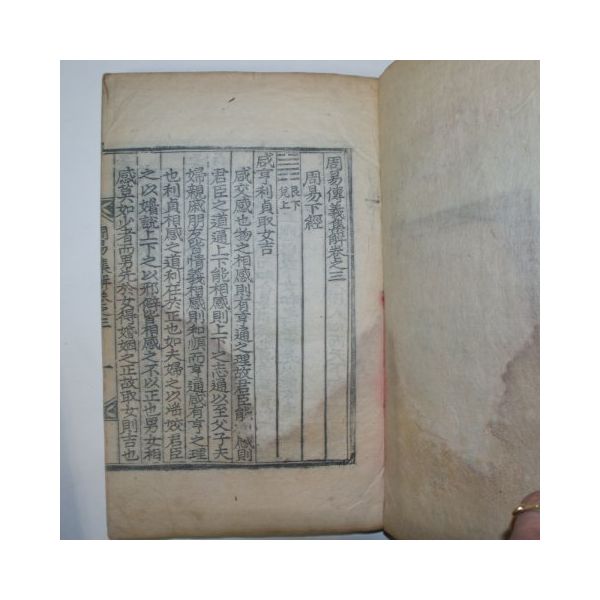 周易傳義集解卷之三
周易下經
艮下
兌上
咸亨利貞取女吉
咸交感也物之相感則有亨通之理故君臣能 感則
君臣之道通上下能相感則上下之志通以至父子夫
婦親戚朋友皆情義相感則和順而亨通咸有亨之理
也利貞相感之道利在於正也如夫婦之以 君臣
之以媚說上下之以邪僻皆相感之不以正也男女相
感莫如少者而男先於女得婚姻之正故取女則吉也
周易集解卷之三
一